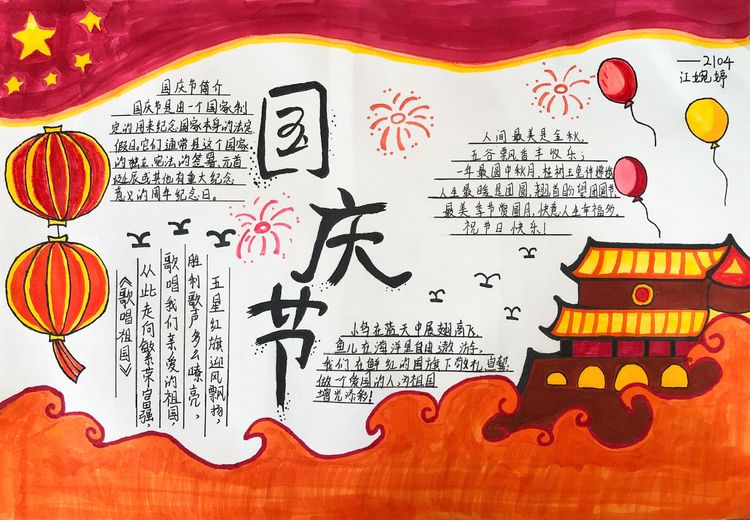 国庆节简介
国庆节是由一个国家制
定的用来纪念国家本身的法定
假日。它们通常是这个国家
的独立、宪法的签署、元首
诞辰或其他有重大纪念
意义的周年纪念日。
国庆节
——2104
江婉婷
人间最美是金秋,
五谷飘香丰收乐;
一年最圆中秋月,桂树玉兔伴嫦娥
人生最暖是团圆,翘首盼望团圆节
最美季节赏圆月,快意人生幸福多。
祝节日快乐!
五星红旗迎风飘扬,
胜利歌声多么嘹亮,
歌唱我们亲爱的祖国,
从此走向繁荣富强,
《歌唱祖国》
小鸟在蓝天中展翅高飞,
鱼儿在海洋里自由遨游,
我们在鲜红的国旗下敬礼,宣誓:
做一个爱国的人,为祖国
增光添彩!